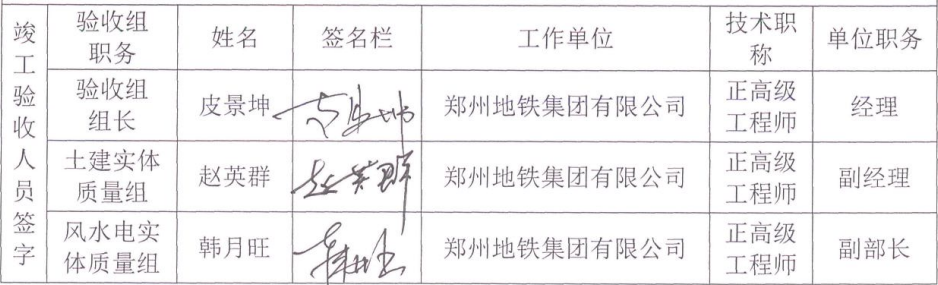 竣工验收人员签字
验收组职务 姓名 签名栏 工作单位 技术职称 单位职务
验收组组长 皮景坤 皮景坤 郑州地铁集团有限公司 正高级工程师 经理
土建实体质量组 赵英群 赵英群 郑州地铁集团有限公司 正高级工程师 副经理
风水电实体质量组 韩月旺 韩月旺 郑州地铁集团有限公司 正高级工程师 副部长